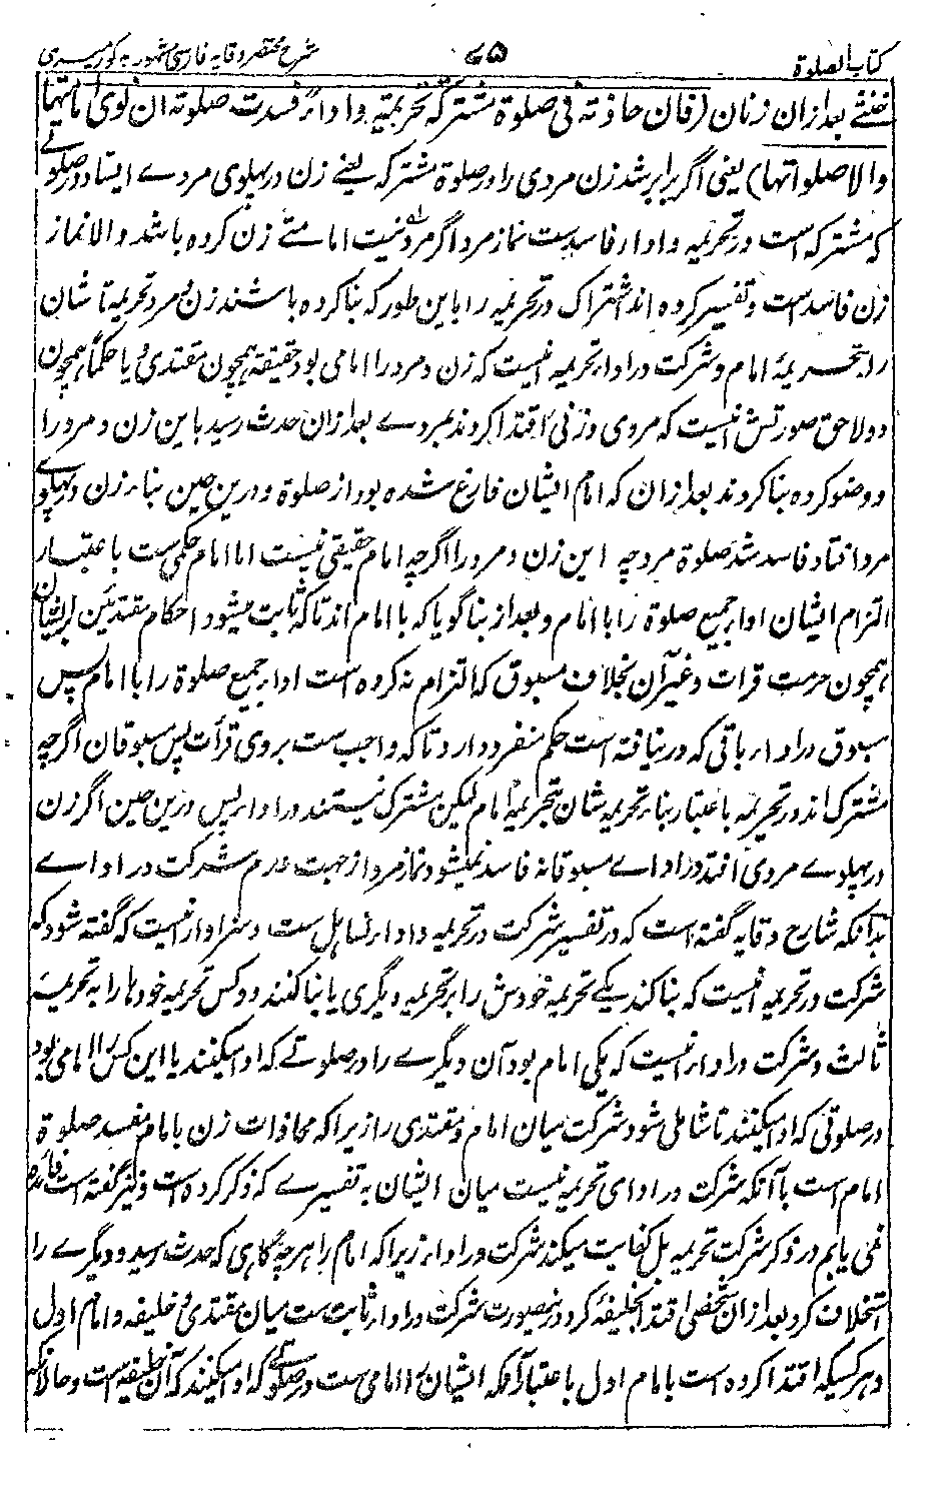 کتاب الصلوة ۷۵ شرح مختصر وقایه فارسی مشهور به کور میری
خنثے بعد ازان زنان (فان حاذته فی صلوة مشترکة تحریمة واداءً فسدت صلوته ان نوی امامتها
والا صلواتها) یعنی اگر برابر شد زن مردی را در صلوة مشترکه یعنے زن در پهلوی مردے ایستاد در صلوتے
که مشترکه است در تحریمه و ادا فاسد ست نماز مرد اگر مرد نیت امامتے زن کرده باشد والا نماز
زن فاسد است و تفسیر کرده اند اشتراک در تحریمه را باین طور که بنا کرده باشند زن و مرد تحریمهٔ شان
را بتحریمهٔ امام و شرکت در ادا بتحریمه اینست که زن و مرد را امامی بود حقیقة همچون مقتدی و یا حکماً همچون
دو لاحق صورتش اینست که مردی و زنی اقتدا کردند بمردے بعد ازان حدث رسید باین زن و مرد را
و وضو کرده بنا کردند بعد ازان که امام ایشان فارغ شده بود از صلوة و درین حین بنا، زن در پهلوے
مرد افتاد فاسد شد صلوة مرد چه این زن و مرد را اگرچه امام حقیقی نیست اما امام حکمی ست باعتبار
التزام ایشان اداء جمیع صلوة را با امام و بعد از بنا گویا که با امام اند تا که ثابت میشود احکام مقتدیین بر ایشان
همچون حرمت قرات و غیر آن بخلاف مسبوق که التزام نه کرده است اداء جمیع صلوة را با امام پس
مسبوق در اداء باقی که در نیافته است حکم منفرد دارد تا که واجب ست بروی قرأت پس مسبوقان اگرچه
مشترک اند در تحریمه باعتبار بناء تحریمه شان بتحریمهٔ امام لیکن مشترک نیستند در ادا پس درین حین اگر زن
در پهلوے مردی افتد در اداے مسبوقانه فاسد نمیشود نماز مرد از جهت عدم شرکت در اداے
بدانکه شارح وقایه گفته است که در تفسیر شرکت در تحریمه و ادا تساهل ست و سزاوار اینست که گفته شود که
شرکت در تحریمه اینست که بنا کند یکے تحریمه خودش را بر تحریمه دیگری یا بنا کنند دو کس تحریمه خودها را به تحریمهٔ
ثالث و شرکت در ادا اینست که یکی امام بود آن دیگرے را در صلوتے که ادا میکنند یا این کس را امامی بود
در صلوتی که ادا میکنند تا شامل شود شرکت میان امام و مقتدی را زیرا که محاذات زن با امام مفسد صلوة
امام است با آنکه شرکت در ادای تحریمه نیست میان ایشان به تفسیرے که ذکر کرده است و نیز گفته است فائده
نمی یابم در ذکر شرکت تحریمه بل کفایت میکند شرکت در ادا، زیرا که امام را هر چه گاهی که حدث رسید و دیگرے را
استخلاف کرد بعد ازان شخصی اقتدا بخلیفه کرد درینصورت شرکت در ادا ثابت ست میان مقتدی و خلیفه و امام اول
و هر کسیکه اقتدا کرده است با امام اول باعتبار آنکه ایشان را امامی ست در صلوتے که ادا میکنند که آن خلیفه است و حالانکه